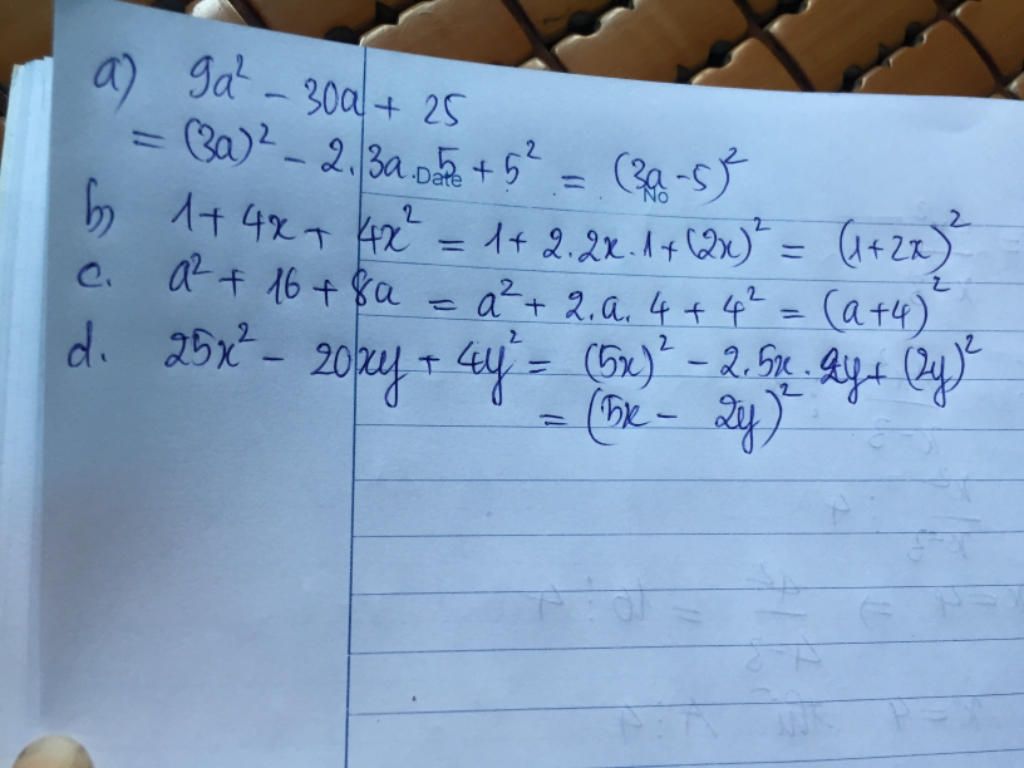 a) 9a² - 30a + 25
= (3a)² - 2.3a.5 + 5² = (3a - 5)²
Date
No
b) 1 + 4x + 4x² = 1 + 2.2x.1 + (2x)² = (1 + 2x)²
c. a² + 16 + 8a = a² + 2.a.4 + 4² = (a + 4)²
d. 25x² - 20xy + 4y² = (5x)² - 2.5x.2y + (2y)²
= (5x - 2y)²